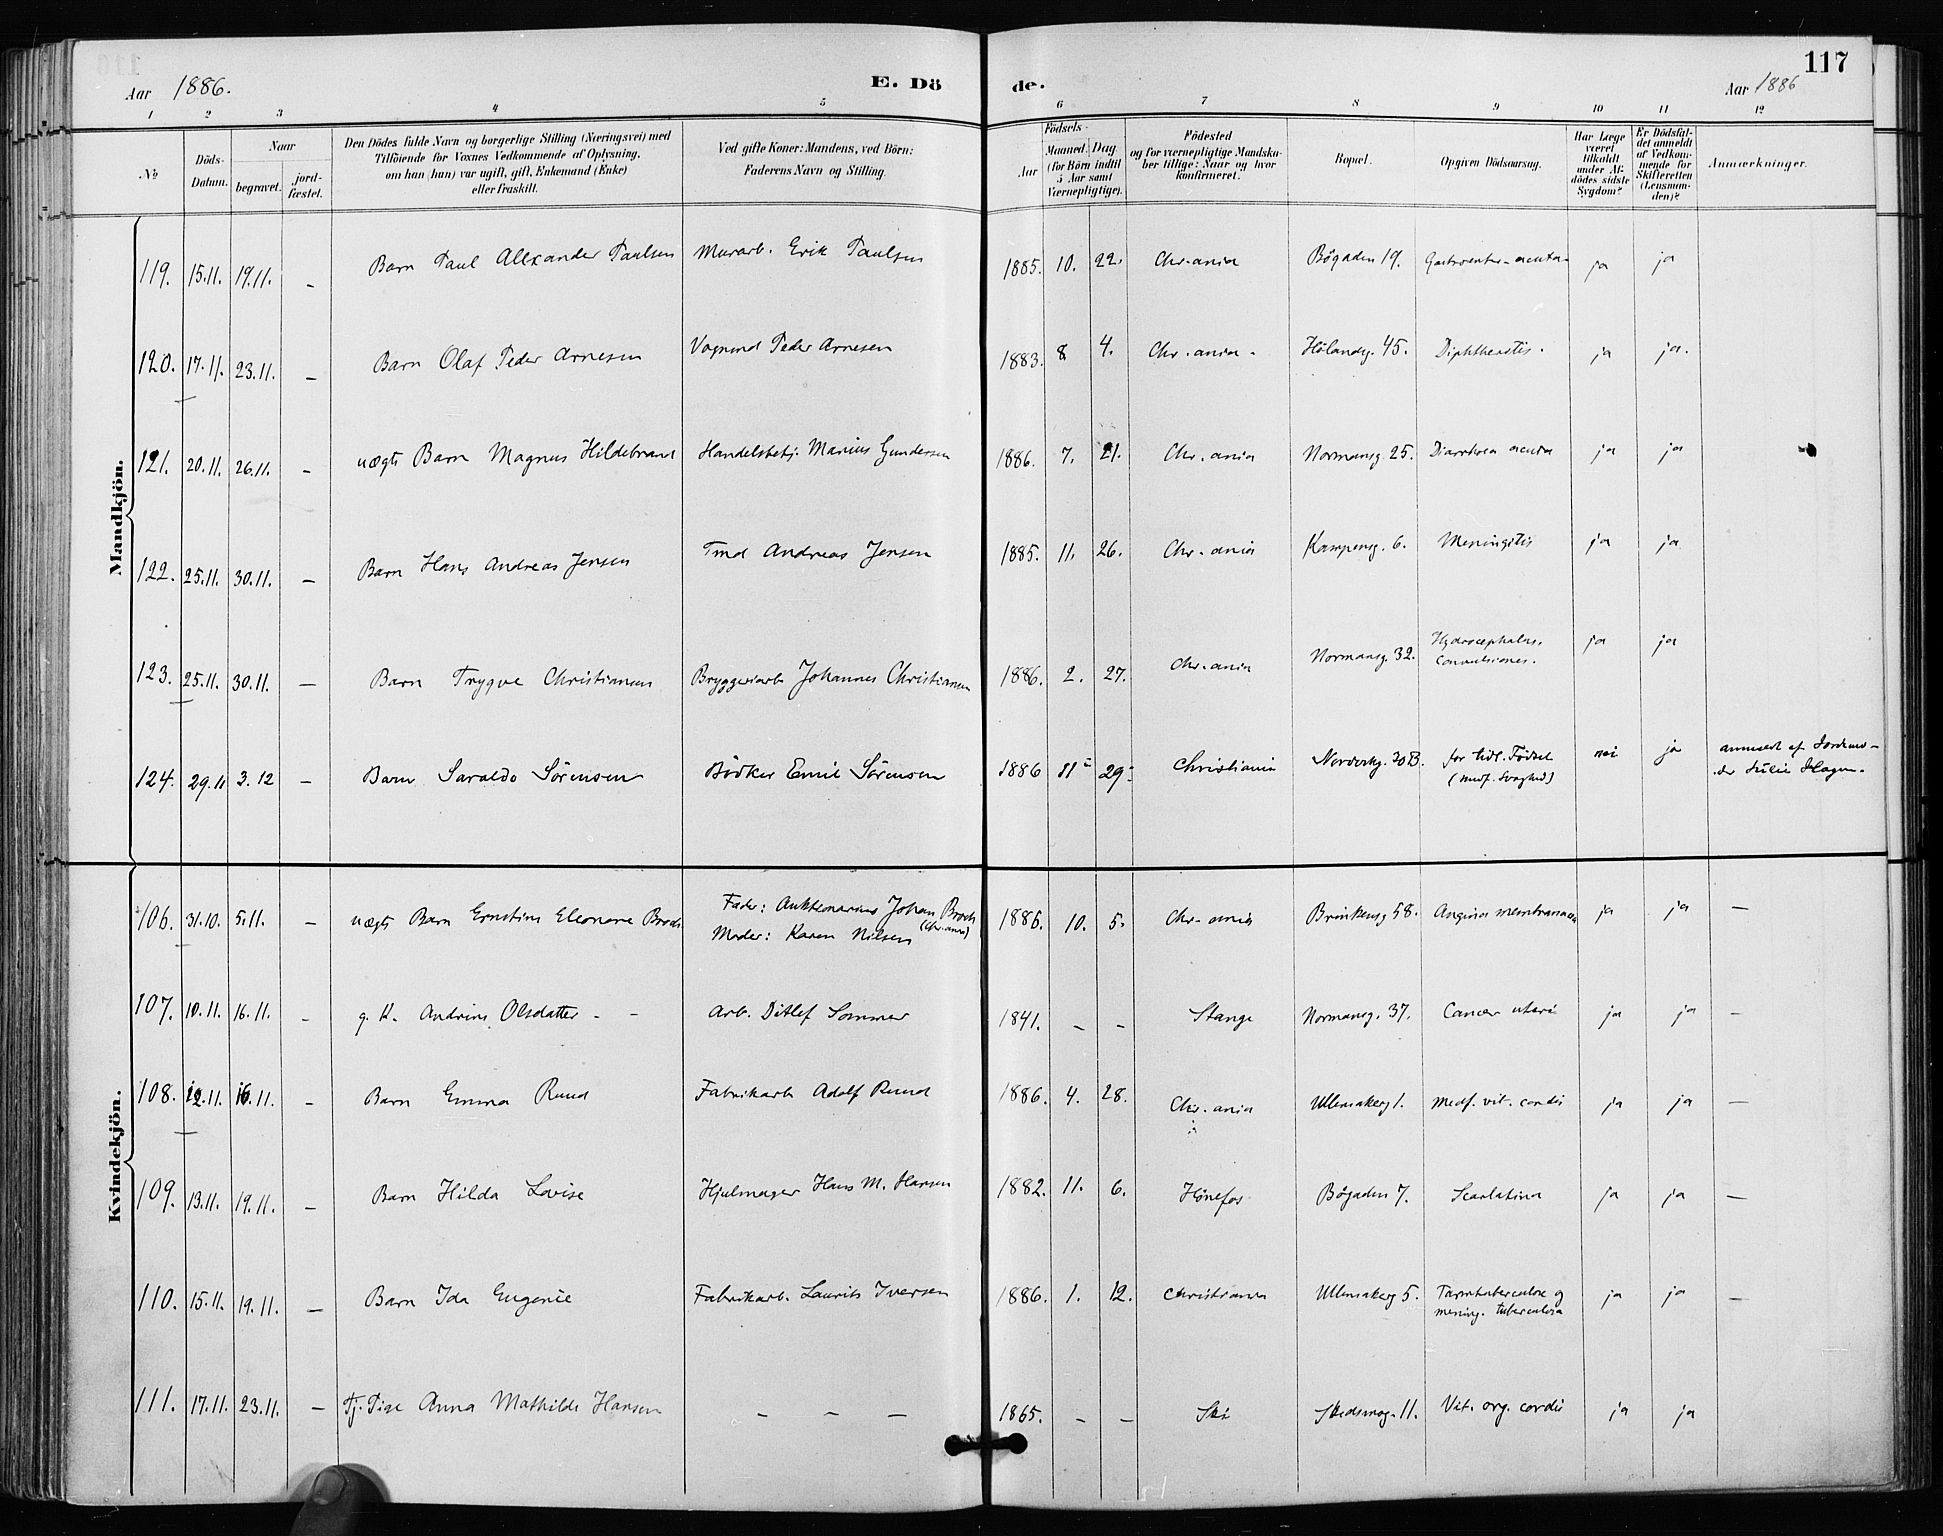 117
Aar 1886. E. Dö de. Aar 1886
1 2 3 4 5 6 7 8 9 10 11 12
No
Döds-Datum.
Naar
begravet.
jord-fæstet.
Den Dödes fulde Navn og borgerlige Stilling (Næringsvei) med
Tilföiende for Voxnes Vedkommende af Oplysning,
om han (hun) var ugift, gift, Enkemand (Enke)
eller fraskilt.
Ved gifte Koner: Mandens, ved Börn:
Faderens Navn og Stilling.
Födsels-
Aar
Maaned. Dag
(for Börn indtil
5 Aar samt
Værnepligtige).
Födested
og for værnepligtige Mandska-
ber tillige: Naar og hvor
konfirmeret.
Bopæl.
Opgiven Dödsaarsag.
Har Læge
været
tilkaldt
under Af-
dödes sidste
Sygdom?
Er Dödsfal-
det anmeldt
af Vedkom-
mende for
Skifteretten
(Lensman-
den)?
Anmærkninger.
Mandkjön.
119. 15.11. 19.11. – Barn Paul Alexander Paulsen Murarb. Erik Paulsen 1885. 10. 22. Chr.ania Bögaden 19. Gastroenter. acuta ja ja
120. 17.11. 23.11. – Barn Olaf Peder Arnesen Vognmd Peder Arnesen 1883. 8 4. Chr.ania. Hölandsg. 45. Diphtheritis. ja ja.
121. 20.11. 26.11. – uægte Barn Magnus Hildebrand Handelsbetj. Marius Gundersen 1886. 7. 21. Chr.ania Normansg. 25. Diarrhoea acuta ja ja
122. 25.11. 30.11. – Barn Hans Andreas Jensen Tmd Andreas Jensen 1885. 11. 26. Chr.ania Kampensg. 6. Meningitis ja ja
123. 25.11. 30.11. – Barn Trygve Christiansen Bryggeriarb Johannes Christiansen 1886. 2. 27. Chr.ania Normansg. 32. Hydrocephalus.
Convulsiones. ja ja
124. 29.11 3.12 – Barn Saraldo Sörensen Bödker Emil Sörensen 1886 11 29 Christiania Norderhg. 30B. for tidl. Födsel
(medf. Svaghed) nei ja anmeldt af Jordemo-
der Julie Hagen.
Kvindekjön.
106. 31.10. 5.11. – uægte Barn Ernstine Eleonore Broch Fader: Auktionarius Johan Broch
(Chr.ania)
Moder: Karen Nilsen 1886. 10. 5. Chr.ania Brinkensg 58. Angina membranacea ja ja –
107. 10.11. 16.11. – g. K. Andrine Olsdatter – – Arb. Ditlef Sommer 1841. – – Stange Normansg. 37. Cancer uteri ja ja –
108. 12.11. 16.11. – Barn Emma Ruud Fabrikarb Adolf Ruud 1886. 4. 28. Chr.ania Ullensakerg 1. Medf. vit. cordis ja ja –
109. 13.11. 19.11. – Barn Hilda Lovise Hjulmager Hans M. Hansen 1882. 11. 6. Hönefos Bögaden 7. Scarlatina ja ja –
110. 15.11. 19.11. – Barn Ida Eugenie Fabrikarb. Laurits Iversen 1886. 1. 12. Christiania Ullensakerg 5. Tarmtuberculose og
mening. tuberculosa ja ja –
111. 17.11. 23.11. – Tj. Pige Anna Mathilde Hansen – – – 1865. – – Ski Skedsmog. 11. Vit. org. cordis ja ja